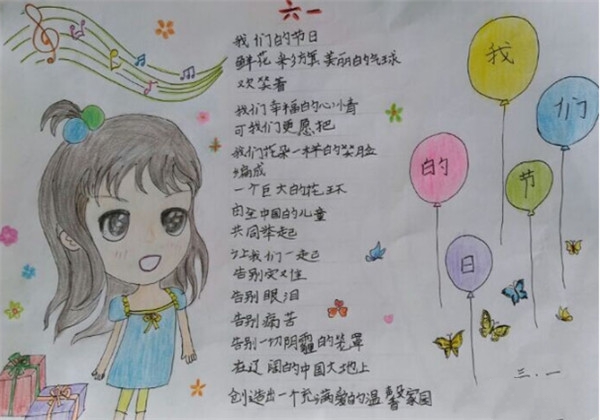 六一
我们的节日
鲜花 彩旗 美丽的气球
欢笑着
我们幸福的心情
可我们更愿把
我们花朵一样的笑脸
编成
一个巨大的花环
由全中国的儿童
共同举起
让我们一起
告别灾难
告别眼泪
告别病苦
告别一切阴霾的笼罩
在辽阔的中国大地上
创造出一个充满爱的温馨家园
我们的节日
三.一